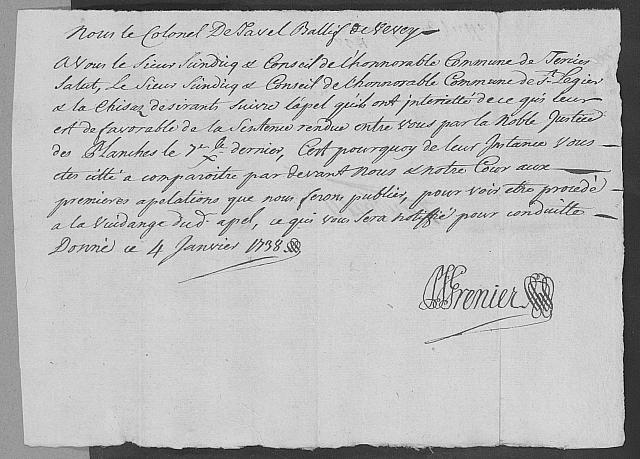 Nous le Colonel De Tavel Ballif de Vevey
A Vous le Sieur Sindiq & Conseil de l'honnorable Commune de
Salut, Le Sieur Sindiq & Conseil de l'honnorable Commune de St. Legier
& la Chisaz desirants suivre lapel qu'ils ont interietté de ce qu'il leur
est defavorable de la Sentence rendue entre Vous par la Noble Justice
des Planches le dernier, C'est pourquoy de leur Instance Vous
etes citté a comparoitre par devant Nous & notre Cour aux
premieres apelations que nous ferons publier, pour voir etre procedé
a la Vuidange dud. apel, ce qui vous sera notiffié pour conduitte
Donné ce 4 Janvier 1738
Grenier